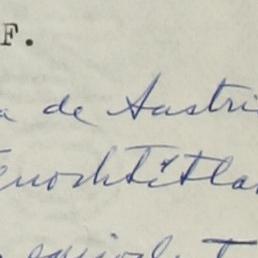 F.
a de Austri
enochtitla